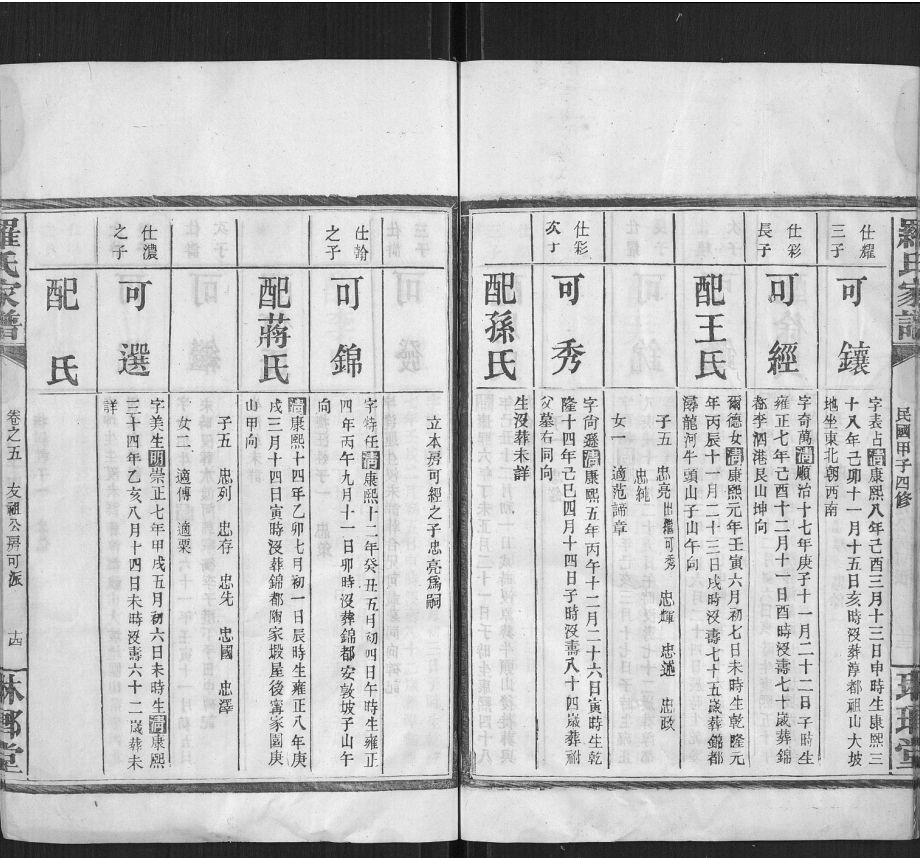 羅氏家譜
民國甲子四修
仕耀
三子
可鑲
字表占清康熙八年己酉三月十三日申時生康熙三
十八年己卯十一月十五日亥時沒葬淳都祖山大坡
地坐東北朝西南
仕彩
長子
可經
字奇萬清順治十七年庚子十一月二十二日子時生
雍正七年己酉十二月十一日酉時沒壽七十歲葬錦
都李泗港艮山坤向
配王氏
爾德女清康熙元年壬寅六月初七日未時生乾隆元
年丙辰十一月二十三日戌時沒壽七十五歲葬錦都
龍河牛頭山子山午向
子五 忠亮出繼可秀 忠輝 忠遜 忠政
忠純
女一 適范諦章
仕彩
次子
可秀
字尚遜清康熙五年丙午十二月二十六日寅時生乾
隆十四年己巳四月十四日子時沒壽八十四歲葬祔
父墓右同向
配孫氏
生沒葬未詳
立本房可經之子忠亮爲嗣
仕翰
之子
可錦
字特任清康熙十二年癸丑五月初四日午時生雍正
四年丙午九月十一日卯時沒葬錦都安敦坡子山午
向
配蔣氏
清康熙十四年乙卯七月初一日辰時生雍正八年庚
戌三月十四日寅時沒葬錦都陶家塅屋後甯家園庚
山甲向
子五 忠列 忠存 忠先 忠國 忠澤
女二 適傅 適粟
仕濃
之子
可選
字美生明崇正七年甲戌五月初六日未時生清康熙
三十四年乙亥八月十四日未時沒壽六十二歲葬未
詳
配 氏
羅氏家譜
卷之五 友祖公房可派 十四